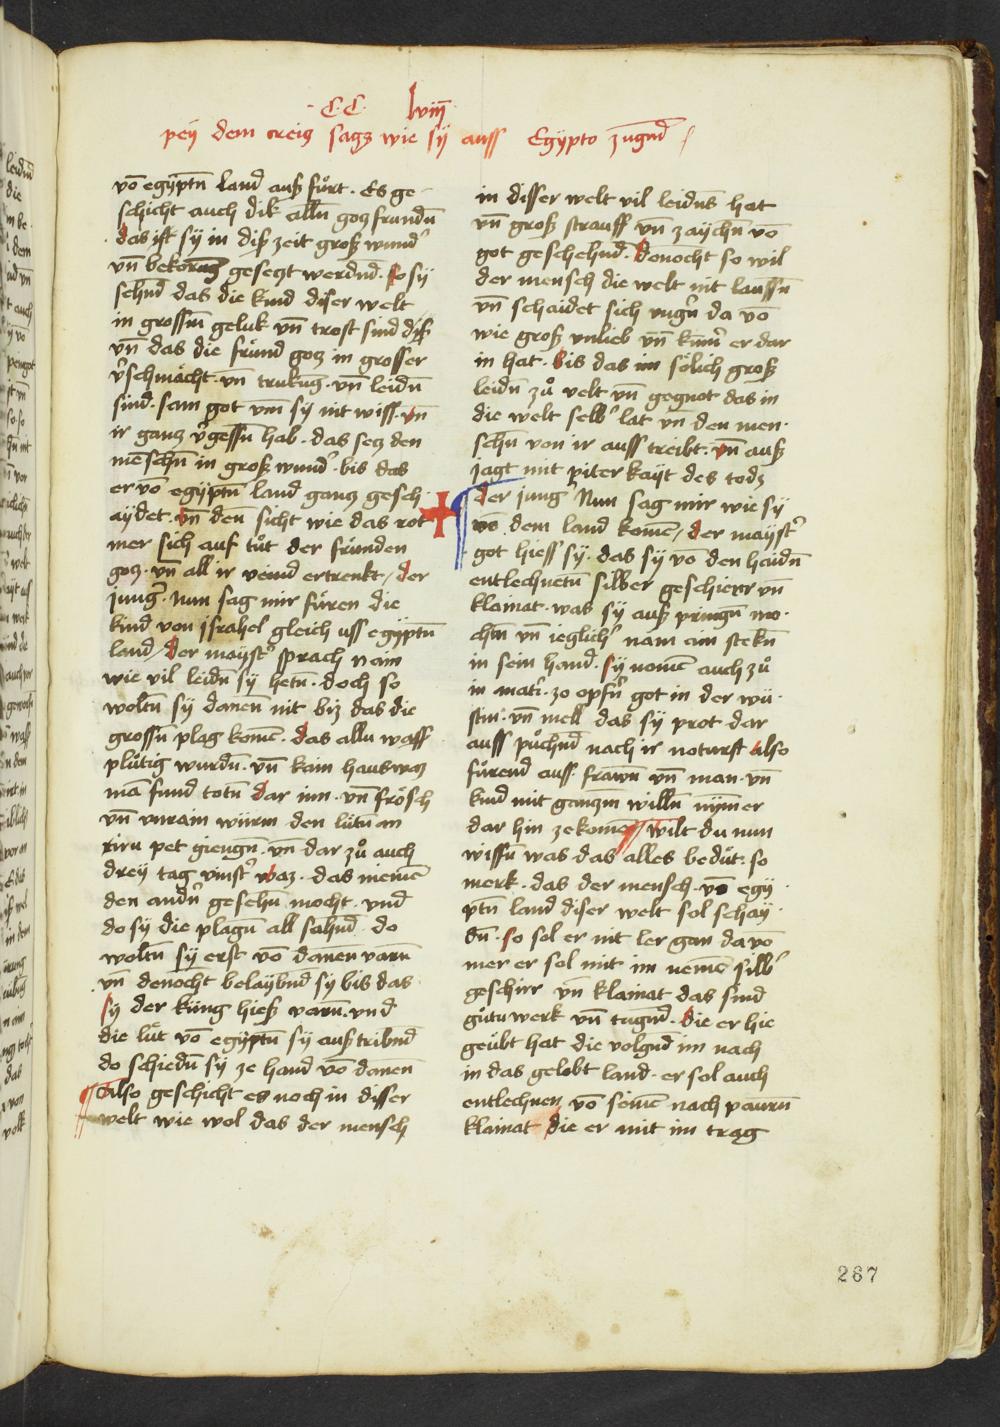 C C lviii
pey dem creig sagz wie sy auss Egypto zugnd
vō egyptn̄ land auß fůrt. Es ge-
schicht auch dik alln̄ gotz frundn̄
das ist sy in diß zeit groß wund̕
vn̄ bekorung gesetzt werdnd. so sy
sehnd das die kind diser welt
in grossm̄ geluk vn̄ trost sind diß
vn̄ das die frund gotz in grosser
v̕schmächt. vn̄ trukung. vn̄ leidn̄
sind. sam got vm̄ sy nit wiss. vn̄
ir gantz v̕gessn̄ hab. das setz den
menschn̄ in groß wund̕. bis das
er vō egyptn̄ land gantz gesch-
aydet. vn̄ den̄ sicht wie das rot
mer sich auf tůt der frunden
gotz. vn̄ all ir veind ertrenkt / der
jung. Nun sag mir fůren die
kind von jsrahel gleich uss egyptn̄
land / der mayst̕ sprach nain
wie vil leidn̄ sy hetn̄. doch so
woltn̄ sy danen̄ nit biz das die
grossn̄ plag komē. das allu wass̕
plůtig wurdn̄. vn̄ kain haus waz
mā fund totn̄ dar inn. vn̄ frösch
vn̄ vnrain würm den lütn̄ an
riru pet giengn̄. vn̄ dar zů auch
drey tag vinst̕ waz. das niemē
den andn̕ gesehn̄ mocht. vnd
do sy die plagn̄ all sahnd. do
woltn̄ sy erst vō danen varn̄
vn̄ denocht belaybnd sy bis das
sy der küng hieß varn̄. vnd
die lüt vō egyptn̄ sy auß tribnd
do schiedn̄ sy ze hand vō danen̄
Also geschicht es noch in disser
welt wie wol das der mensch
in disser welt vil leidns̄ hat
vn̄ groß strauff vn̄ zaychn̄ vō
got geschehnd. Denocht so wil
der mensch die welt nit laussn̄
vn̄ schaidet sich vngn̕ da vō
wie groß vnlieb vn̄ kum̄ er dar
in hat. bis das im sölich groß
leidn̄ zů velt vn̄ gegnot das in
die welt selb̕ lat vn̄ den men-
schn̄ von ir auss treibt. vn̄ auß
jagt mit piterkayt des todz
der jung Nun sag mir wie sy
vō dem land komē / der mayst̕
got hiess sy. das sy vō den haidn̄
entlechnetn̄ silber geschierr vn̄
klainat. was sy auß pringn̄ mo-
chtn̄ vn̄ ieglich̕ nam ain stekn̄
in sein hand. sy nomē auch zů
in mat̕i. zo opfn̕ got in der wü-
stin. vn̄ mell das sy prot dar
auss půchnd nach ir noturft also
fůrend auss. frawn̄ vn̄ man. vn̄
kind mit gantzm̄ willn̄ nymer
dar hin ze komē wilt du nun
wissn̄ was das alles bedüt. so
merk. das der mensch. vō egy-
ptn̄ land diser welt sol schay-
dn̄. so sol er nit ler gan da vō
mer er sol mit im nemē silb̕
geschirr vn̄ klainat das sind
gůtu werk vn̄ tugnd. die er hie
geübt hat die volgnd im nach
in das gelobt land. er sol auch
entlechnen vō seinē nach paurn̄
klainat die er mit im trag
267